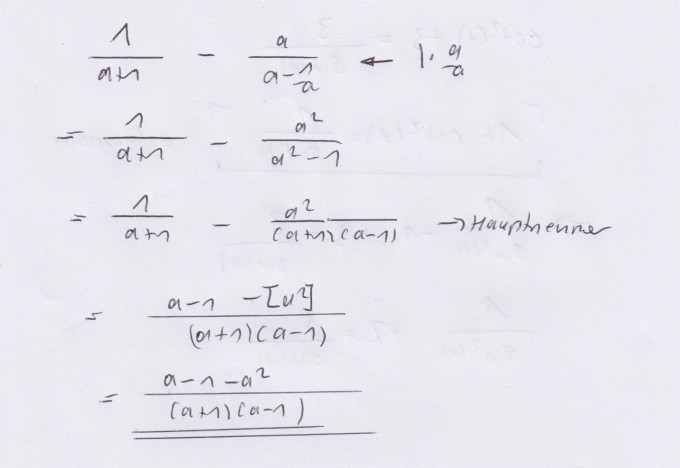 1/(a+1) - a/(a - 1/a) ← |· a/a
= 1/(a+1) - a²/(a²-1)
= 1/(a+1) - a²/((a+1)(a-1)) → Hauptnenner
= (a-1 -[a²])/((a+1)(a-1))
= (a-1-a²)/((a+1)(a-1))